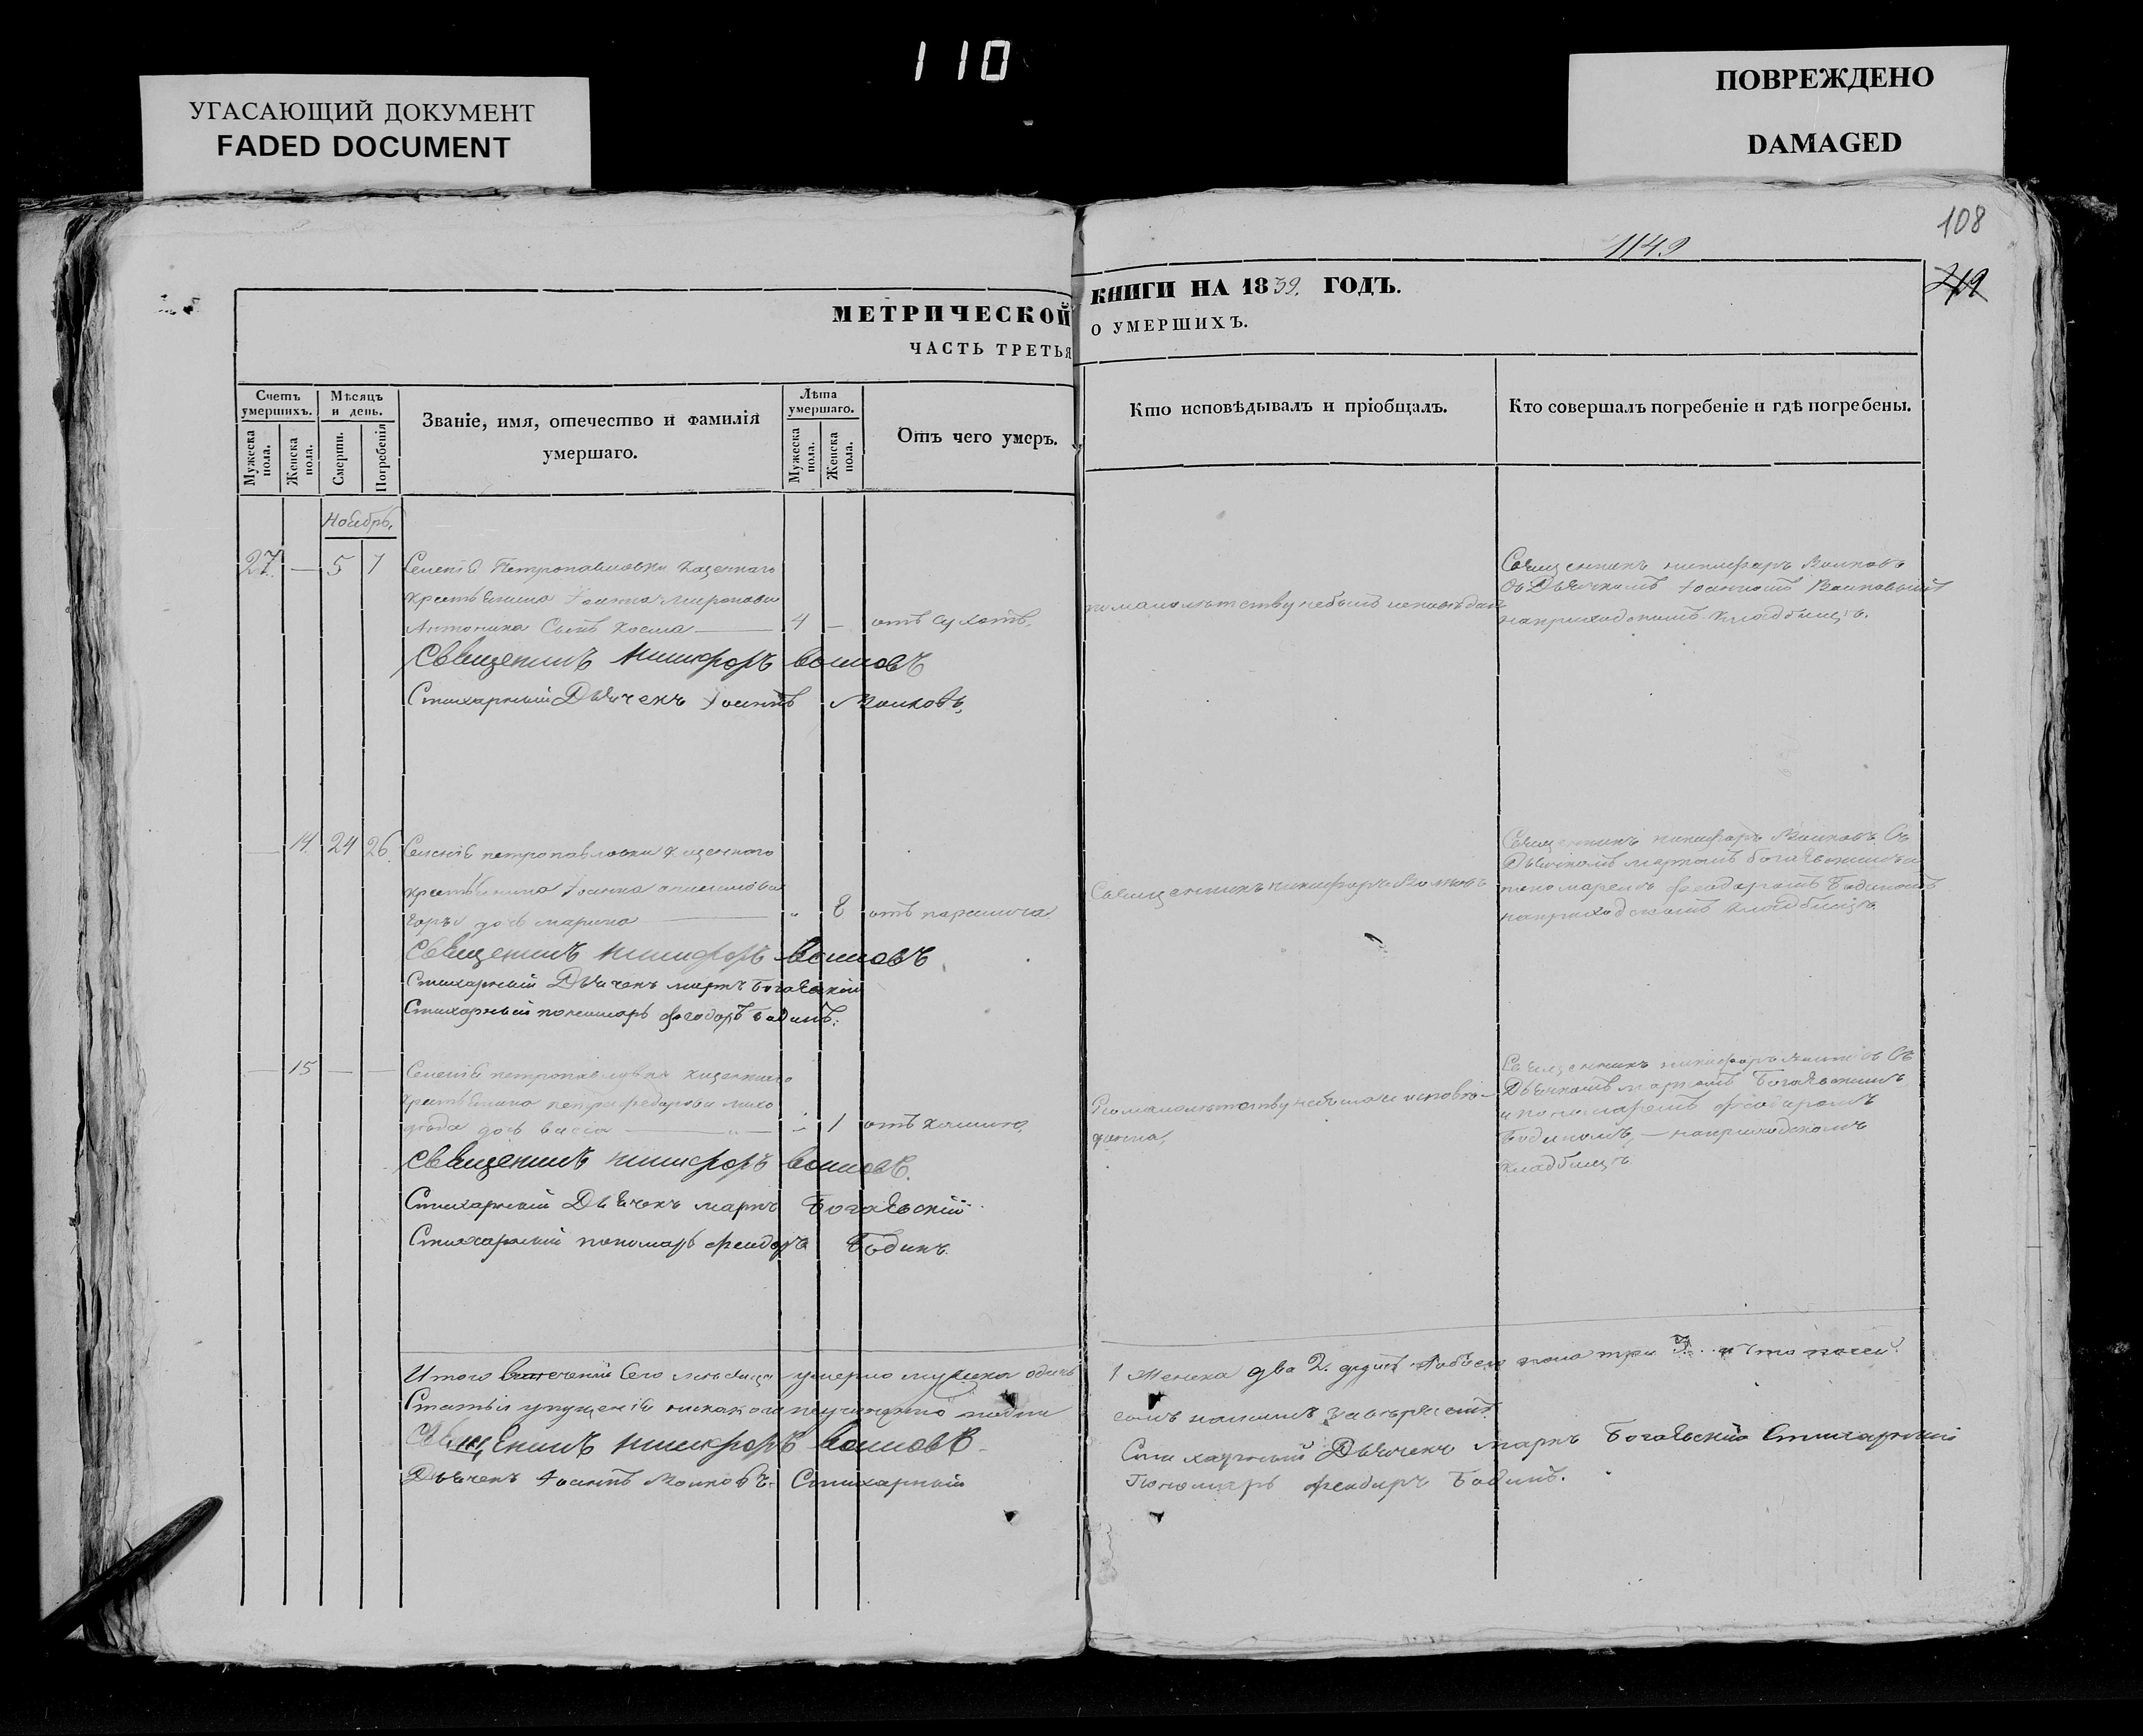 110
УГАСАЮЩИЙ ДОКУМЕНТ
FADED DOCUMENT
ПОВРЕЖДЕНО
DAMAGED
108
1149
219
МЕТРИЧЕСКОЙ КНИГИ НА 1839. ГОДЪ.
ЧАСТЬ ТРЕТЬЯ О УМЕРШИХЪ.
Счетъ умершихъ.
Мужеска пола.
Женска пола.
Мѣсяцъ и день.
Смерти.
Погребенія
Званіе, имя, отечество и фамилія
умершаго.
Лѣта умершаго.
Мужеска пола.
Женска пола.
Отъ чего умеръ.
Кто исповѣдывалъ и пріобщалъ.
Кто совершалъ погребеніе и гдѣ погребены.
Ноябрь.
27 — 5 7 Селенія Петропавловки Казеннаго
крестьянина Іоанна Миронова
Антонина Сынъ Косма — 4 — отъ сухотъ.
по малолѣтству небылъ исповѣдан
Священникъ никифоръ Волковъ
Съ Дьячкомъ Іоанномъ Волковымъ
наприходскомъ кладбищѣ.
Священникъ Никифоръ Волковъ
Стихарный Дьячекъ Іоаннъ Волковъ,
— 14 24 26 Селенія петропавловки казенного
крестьянина Іоанна
дочь марина — „ 8 отъ паралича
Священникъ никифоръ Волковъ
Священникъ никифоръ Волковъ Съ
Дьячкомъ маркомъ Богаевскимъ и
пономаремъ Феодоромъ Бодиномъ
наприходскомъ кладбищѣ.
Священникъ никифоръ Волковъ
Стихарный Дьячекъ маркъ Богаевскій
Стихарный пономарь феодоръ Бодинъ.
— 15 — — Селенія петропавловки казенного
крестьянина петра федорова лихо
дѣда дочь васса — „ — 1 отъ кашлю,
По малолѣтству небыла исповѣ-
дана,
Священникъ никифоръ Волковъ Съ
Дьячкомъ маркомъ Богаевскимъ
и пономаремъ феодоромъ
Бодиномъ, — наприходскомъ
кладбищѣ
Священникъ никифоръ Волковъ.
Стихарный Дьячекъ маркъ Богаевскій
Стихарный пономарь феодоръ Бодинъ.
Итого втеченіи Сего мѣсяца умерло мужеска одинъ 1 Женска два 2. Обоего пола три 3. и что посей
Статьи упущенія никакого неучинено
симъ нашимъ
Священникъ никифоръ Волковъ
Стихарный Дьячекъ маркъ Богаевскій Стихарный
Дьячекъ Іоаннъ Волковъ. Стихарный
Пономарь феодоръ Бодинъ.